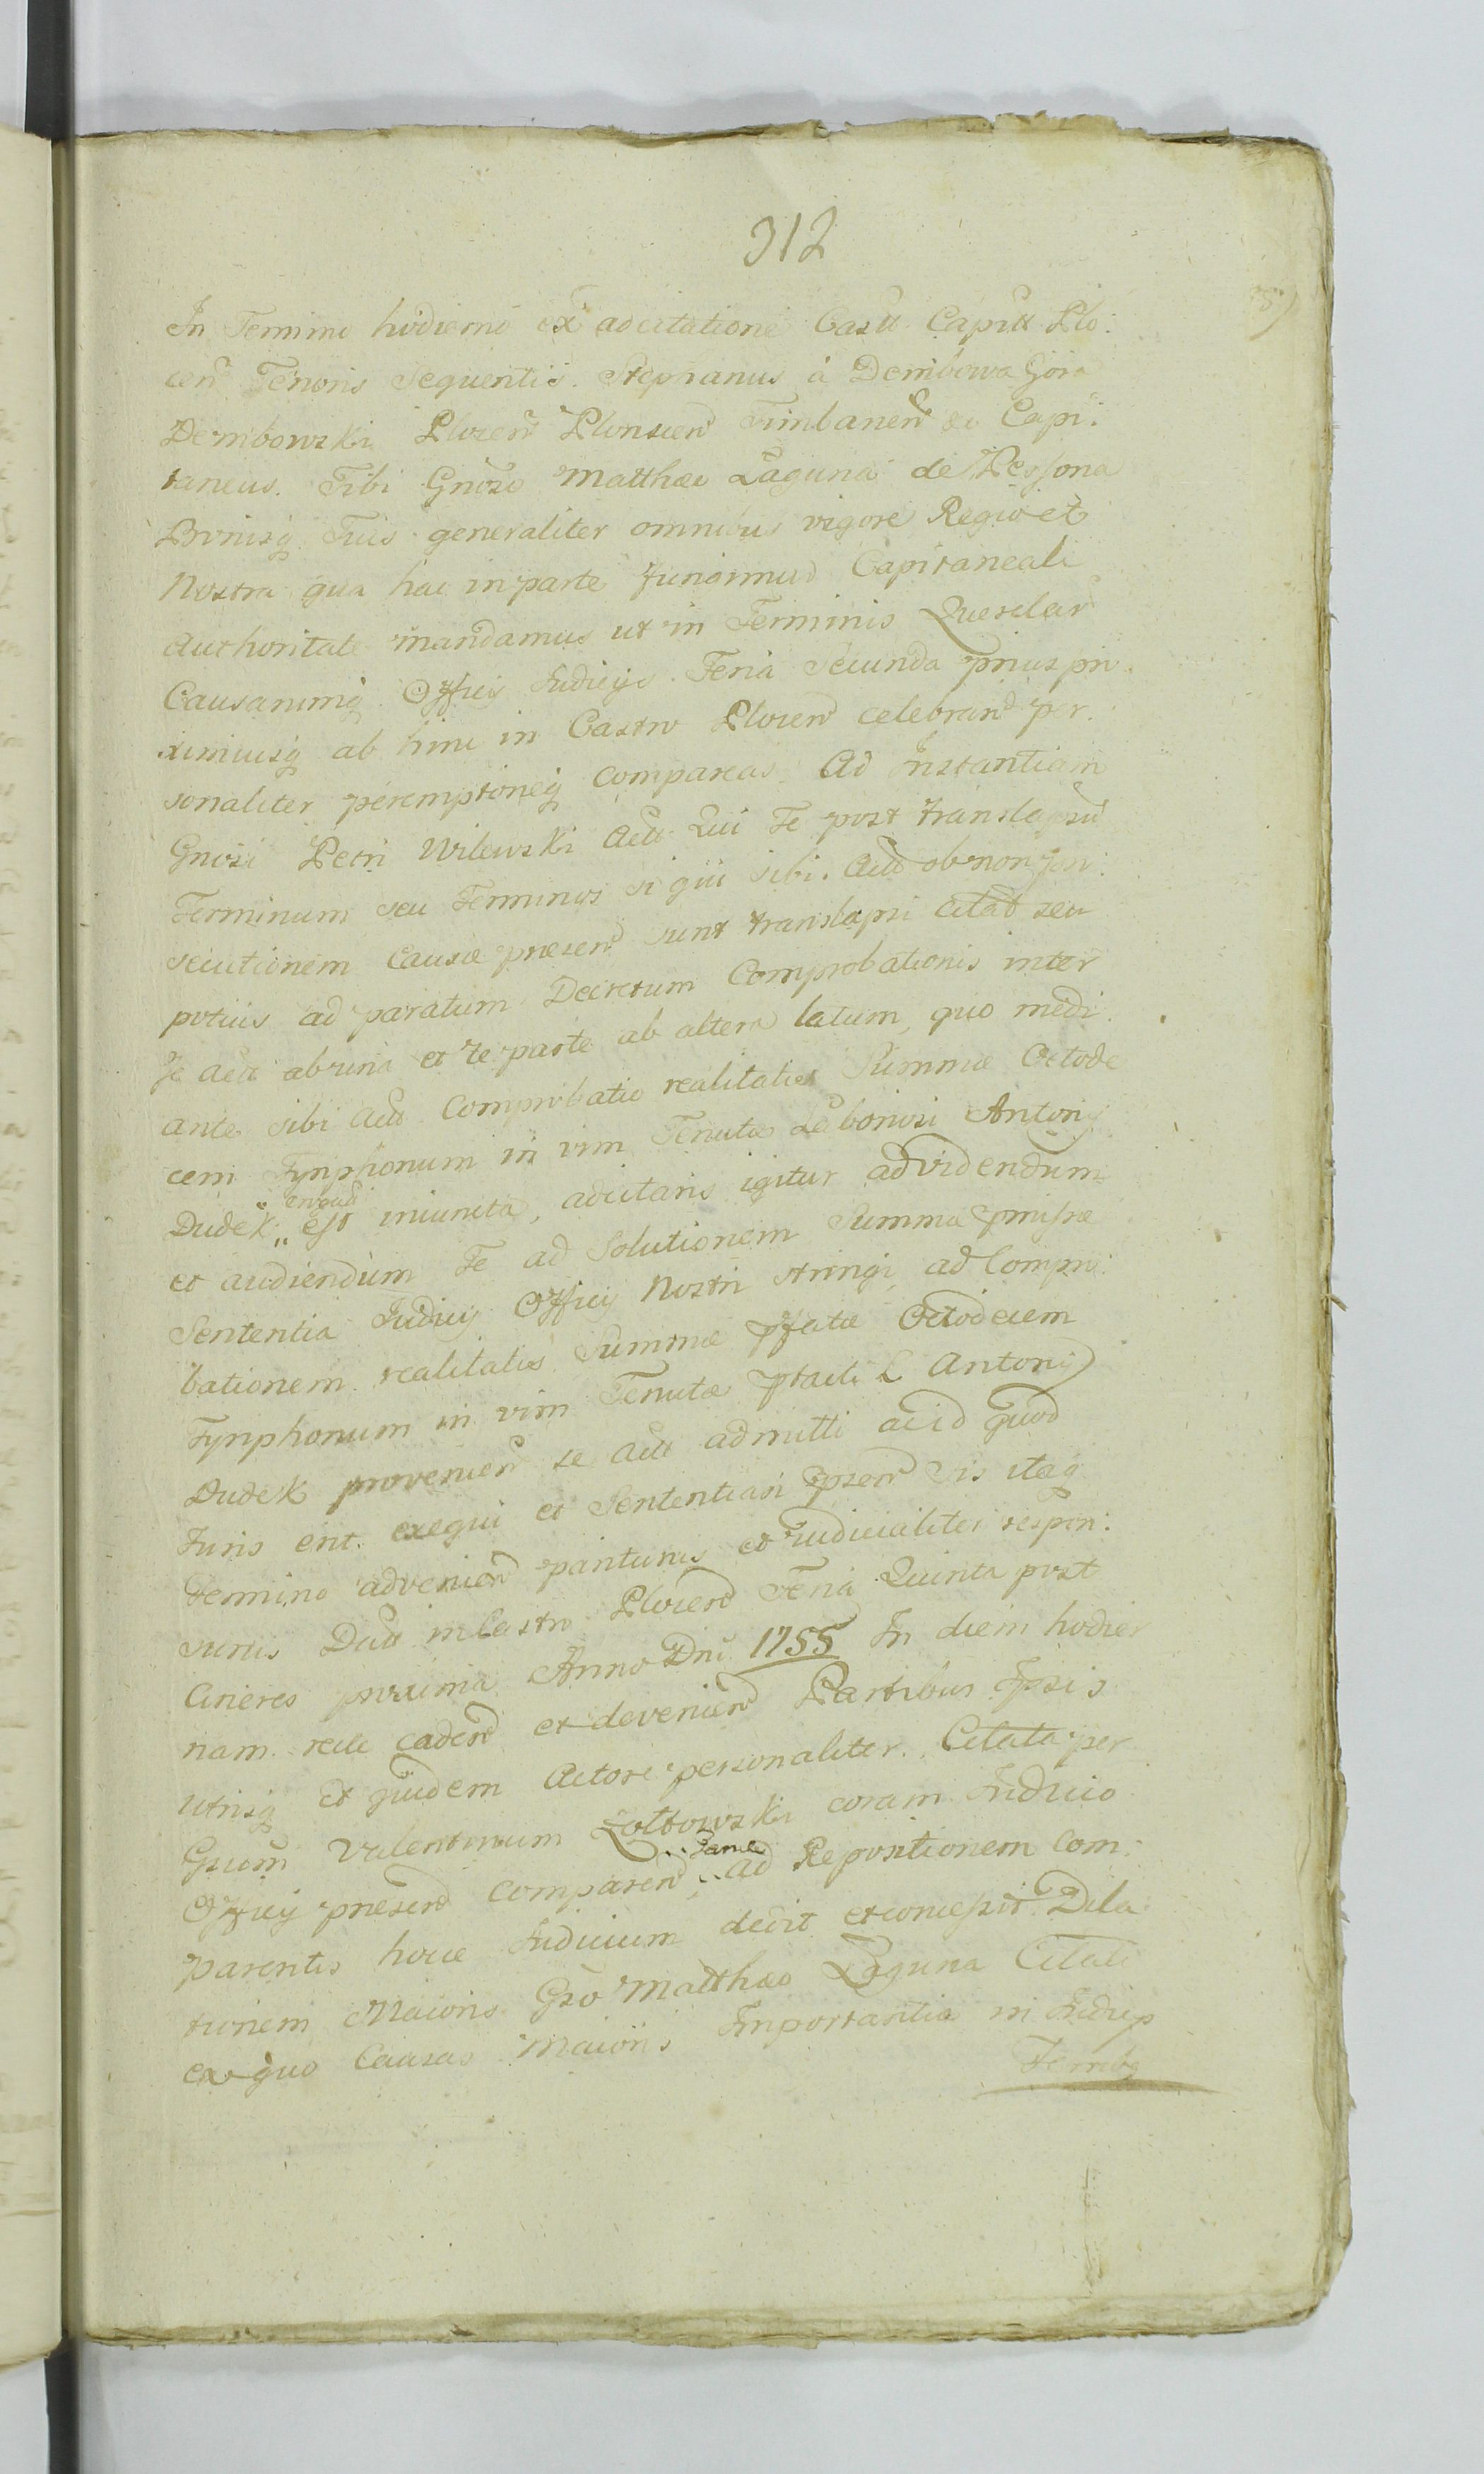 312
In Termino hodierno ex adcitatione Castt Capitt Plo:
cen Tenoris Sequentis. Stephanus à Dembowa Góra
Dembowski Plocen Plonscen Timbanen & Capi:
taneus. Tibi Gnoso Matthæo Laguna de Persona
Bonisq Tuis generaliter omnibus vigore Regio et
Nostra qua hac in parte fungimur Capitaneali
Authoritate mandamus ut in Terminis Querelar
Causarumq Officij Judicijs. Feria Secunda prius pro
ximiusq ab hinc in Castro Plocen celebrand per:
sonaliter peremptorieq compareas. Ad Instantiam
Gnosi Petri Wilewski Actt Qui Te post translapsu
Terminum seu Terminos si qui sibi Actt ob non pro:
secutionem causæ præsen sunt translapsi citat seu
potius ad paratum Decretum Comprobationis inter
se Actt ab una et te parte ab altera latum, quo medi:
ante sibi Actt Comprobatio realitatis Summæ Octode
cem Tynphonum in vim Tenutæ Laboriosi Antonij
Dudek " erogad
est iniuncta, adcitaris igitur ad videndum
et audiendum Te ad Solutionem Summæ pmissæ
Sententia Judicij Officij Nostri stringi, ad Compro:
bationem realitatis Summæ pfatæ Octodecem
Tynphonum in vim Tenutæ pfacti L Antonij
Dudek provenien se Actt admitti acid quod
Juris erit. exequi et Sententiari psen Sis itaq
Termino advenien pariturus et judicialiter respon:
surus Datt in Castro Plocen Feria Quinta post
Cineres proxima Anno Dni 1755 In diem hodier
nam recte caden et devenien Partibus Ipsis
Utrisq Et quidem Actore personaliter. Citata per
Gsum Valentinum Żółtowski coram Judicio
Officij præsen comparen, " Tame
" ad Repositionem Com:
parentis hocce Judicium dedit et concessit Dila
tionem Maioris Gso Matthæo Laguna Citati
ex quo Causas Maioris Importantia in Judicp
Termbg